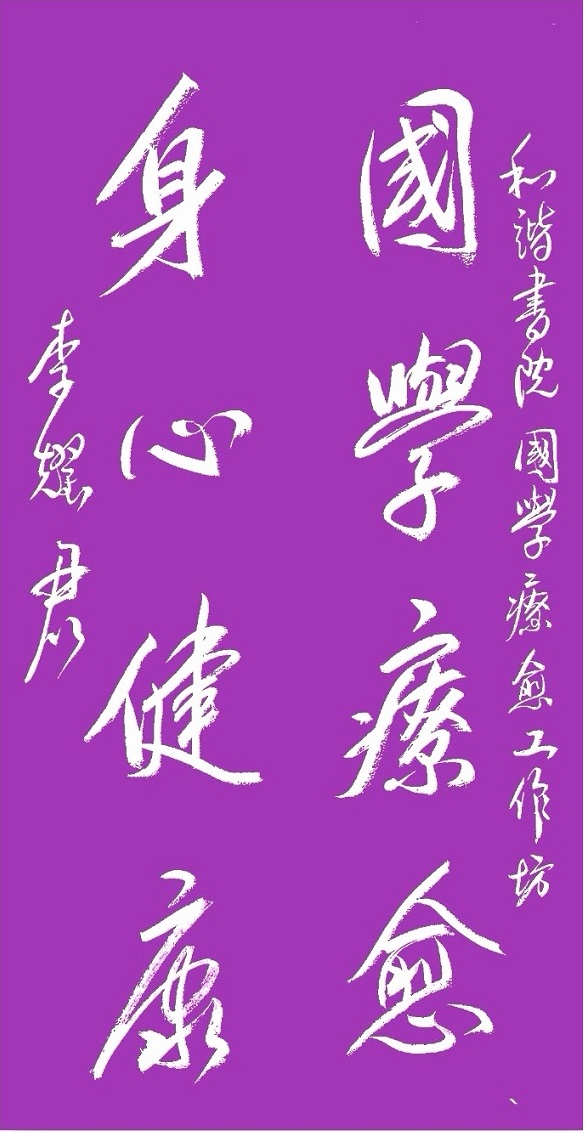 和諧書院國學療愈工作坊
國學療愈
身心健康
李耀君